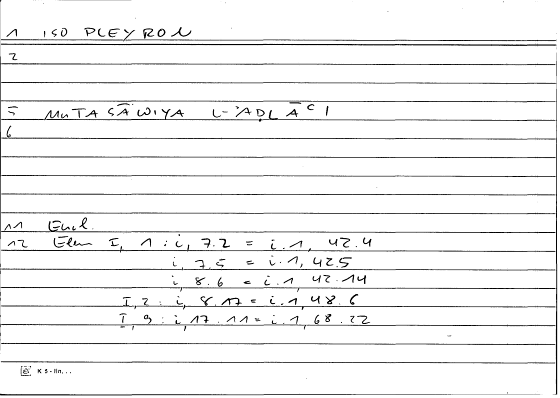 1 ISO PLEYRON
2
5 MUTASĀWIYA L-ʾAḌLĀʿ I
6
11 Eucl.
12 Elem I, 1 : i, 7.2 = i.1, 42.4
i, 7.5 = i.1, 42.5
i, 8.6 = i.1, 42.14
I, 2 : i, 8.17 = i.1, 48.6
I, 9 : i, 17.11 = i.1, 68.22
K 5 -